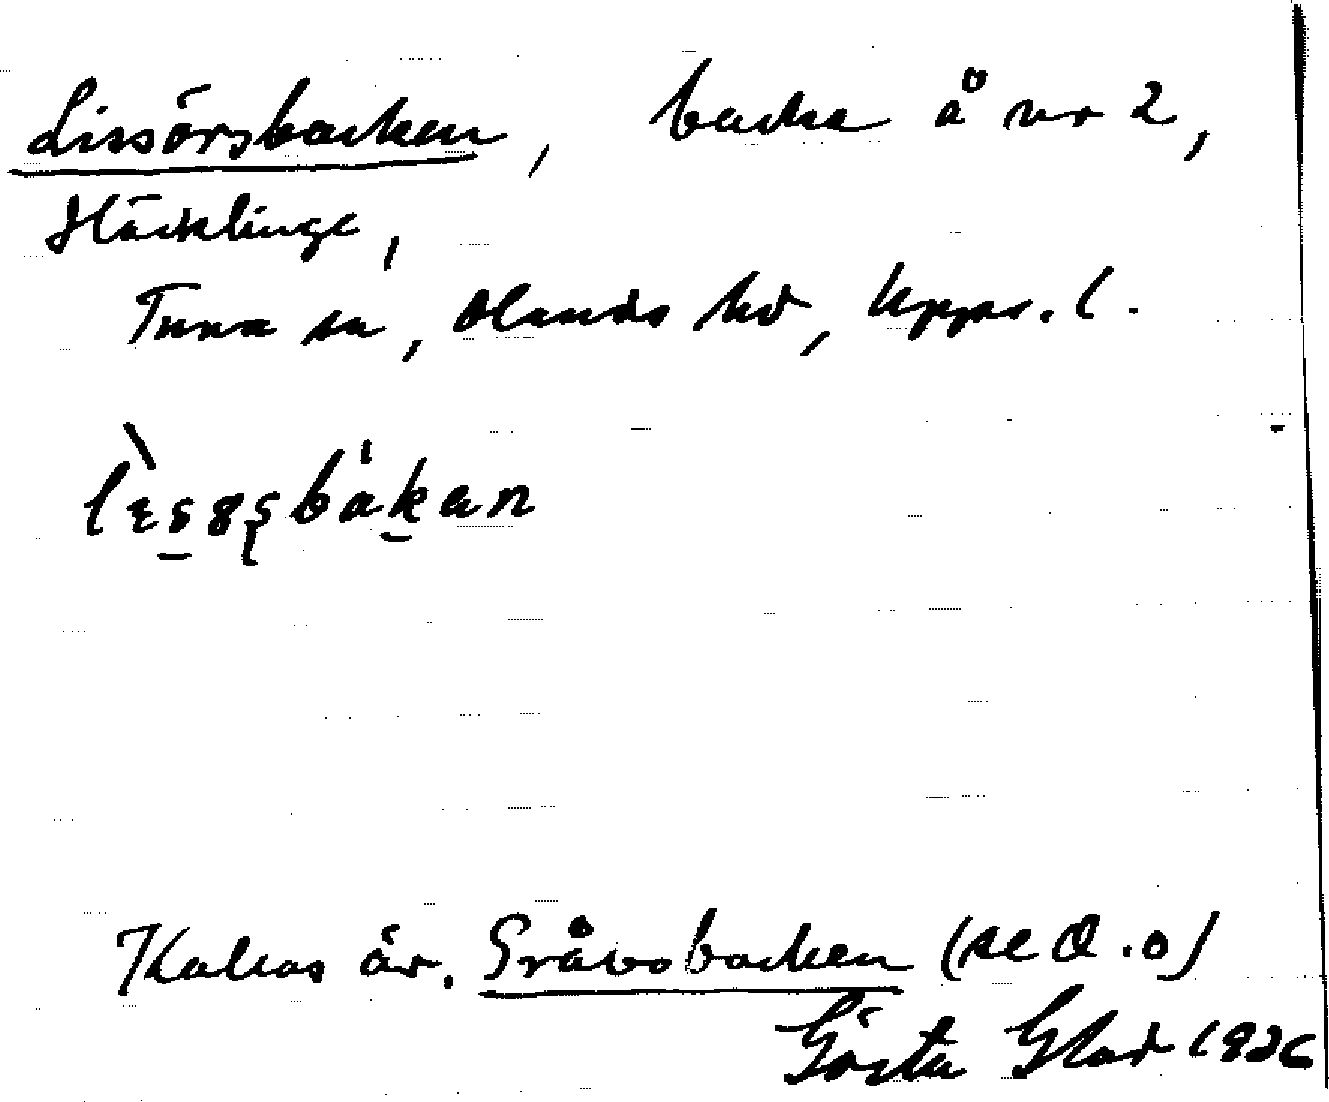 Lissörsbacken, backe å nr 2,
Häcklinge,
Tuna sn, Olands hd, Upps. l.
Kallas äv. Gråbobacken (se d. o)
Gösta Glad 1926